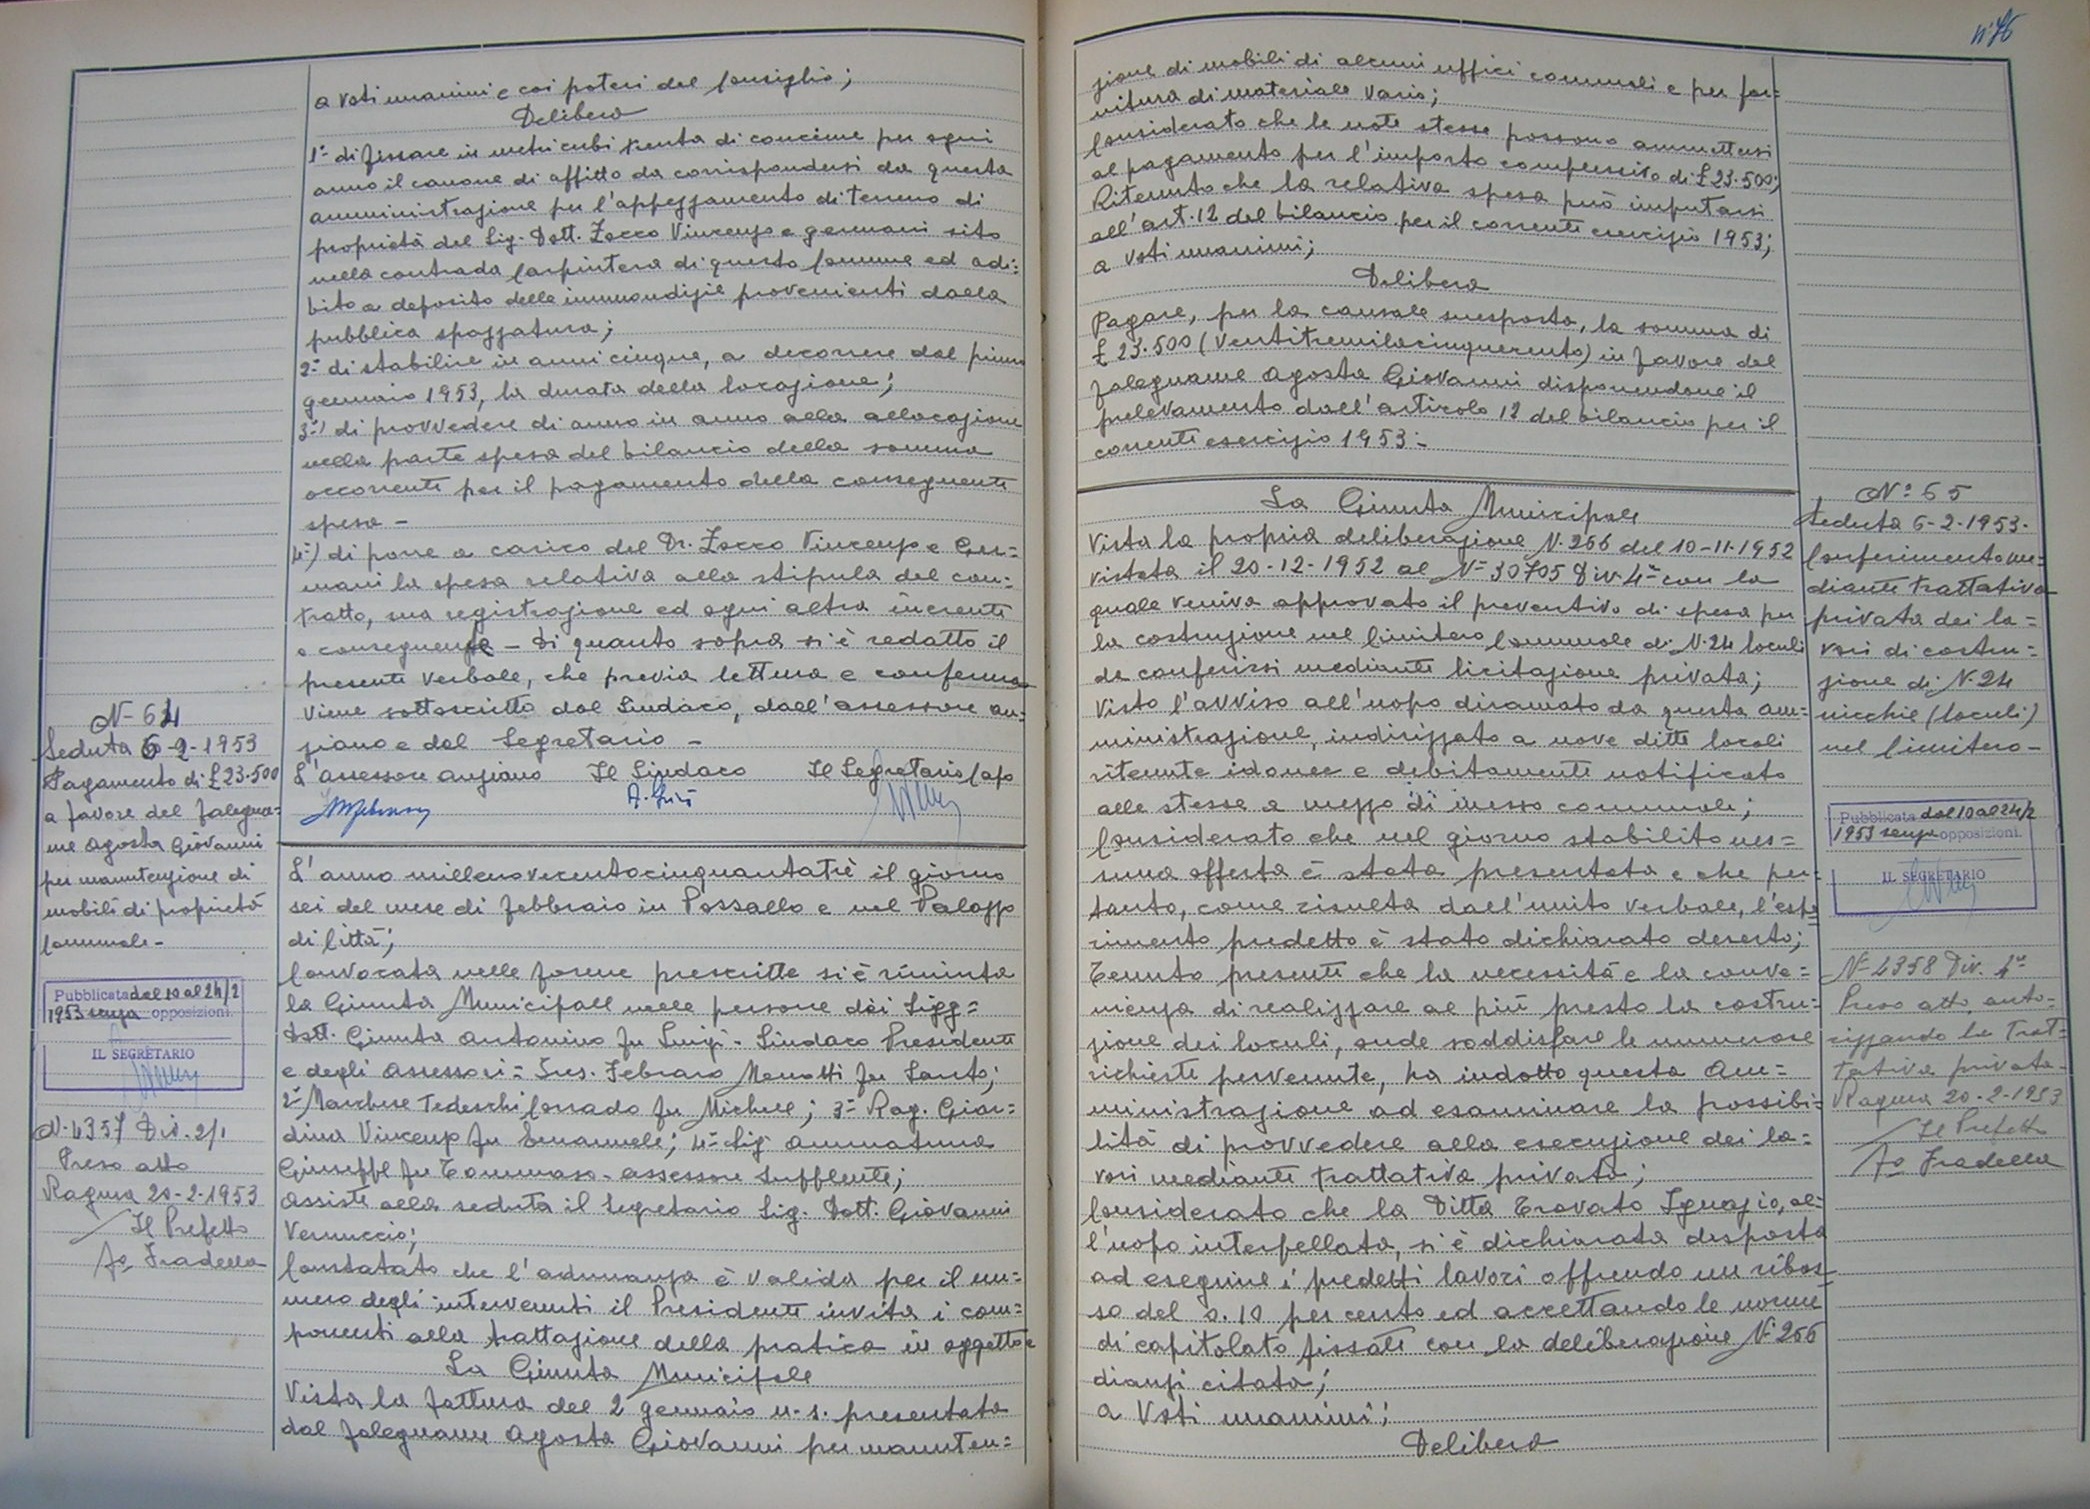 a voti unanimi e coi poteri del Consiglio;
Delibera
1° di fissare in metri cubi trenta di concime per ogni
anno il canone di affitto da corrispondersi da questa
amministrazione per l'appezzamento di terreno di
proprietà del Sig. Dott. Zocco Vincenzo e germani sito
nella contrada Carpintera di questo Comune ed adi=
bito a deposito delle immondizie provenienti dalla
pubblica spazzatura;
2° di stabilire in anni cinque, a decorrere dal primo
gennaio 1953, la durata della locazione;
3°) di provvedere di anno in anno alla allocazione
nella parte spesa del bilancio della somma
occorrente per il pagamento della conseguente
spesa -
4°) di porre a carico del Dr. Zocco Vincenzo e Ger=
mani la spesa relativa alla stipula del con=
tratto, sua registrazione ed ogni altra inerente
e conseguente - Di quanto sopra si è redatto il
presente verbale, che previa lettura e conferma
viene sottoscritto dal Sindaco, dall'assessore an=
ziano e dal Segretario -
L'assessore anziano Il Sindaco Il Segretario Capo
N- 64
Seduta 6-2-1953
Pagamento di £ 23.500
a favore del falegna=
me Agosta Giovanni
per manutenzione di
mobili di proprietà
Comunale -
Pubblicata dal 10 al 24/2
1953 senza opposizioni.
IL SEGRETARIO
N. 4357 Div. 2/1
Preso atto
Ragusa 20-2-1953
Il Prefetto
fo Fradella
L'anno millenovecentocinquantatrè il giorno
sei del mese di febbraio in Pozzallo e nel Palazzo
di Città;
Convocata nelle forme prescritte si è riunita
la Giunta Municipale nelle persone dei Sigg=
Dott. Giunta Antonino fu Luigi - Sindaco Presidente
e degli Assessori = Ins. Febraro Menotti fu Santo;
2° Marchese Tedeschi Corrado fu Michele; 3° Rag. Giar=
dina Vincenzo fu Emanuele; 4° Sig. Ammatuna
Giuseppe fu Tommaso - assessore supplente;
Assiste alla seduta il Segretario Sig. Dott. Giovanni
Vernuccio;
Constatato che l'adunanza è valida per il nu=
mero degli intervenuti il Presidente invita i com=
ponenti alla trattazione della pratica in oggetto e
La Giunta Municipale
Vista la fattura del 2 gennaio u.s. presentata
dal falegname Agosta Giovanni per manuten=
N° 76
zione di mobili di alcuni uffici comunali e per for=
nitura di materiale vario;
Considerato che le note stesse possono ammettersi
al pagamento per l'importo complessivo di £ 23.500;
Ritenuto che la relativa spesa può imputarsi
all'art. 12 del bilancio per il corrente esercizio 1953;
a voti unanimi;
Delibera
Pagare, per la causale suesposta, la somma di
£ 23.500 (Ventitremilacinquecento) in favore del
falegname Agosta Giovanni disponendone il
prelevamento dall'articolo 12 del bilancio per il
corrente esercizio 1953 -
La Giunta Municipale
Vista la propria deliberazione N. 266 del 10-11-1952
vistata il 20-12-1952 al N° 30705 Div. 4° con la
quale veniva approvato il preventivo di spesa per
la costruzione nel Cimitero Comunale di N. 24 loculi
da conferirsi mediante licitazione privata;
Visto l'avviso all'uopo diramato da questa am=
ministrazione, indirizzato a nove ditte locali
ritenute idonee e debitamente notificato
alle stesse a mezzo di messo comunale;
Considerato che nel giorno stabilito nes=
suna offerta è stata presentata e che per=
tanto, come risulta dall'unito verbale, l'espe=
rimento predetto è stato dichiarato deserto;
Tenuto presente che la necessità e la conve=
nienza di realizzare al più presto la costru=
zione dei loculi, onde soddisfare le numerose
richieste pervenute, ha indotto questa Am=
ministrazione ad esaminare la possibi=
lità di provvedere alla esecuzione dei la=
vori mediante trattativa privata;
Considerato che la Ditta Trovato Ignazio, al=
l'uopo interpellata, si è dichiarata disposta
ad eseguire i predetti lavori offrendo un ribas=
so del 0.10 per cento ed accettando le norme
di capitolato fissate con la deliberazione N° 266
dianzi citata;
a Voti unanimi;
Delibera
N° 65
Seduta 6-2-1953.
Conferimento me=
diante trattativa
privata dei la=
vori di costru=
zione di N. 24
nicchie (loculi)
nel Cimitero -
Pubblicata dal 10 al 24/2
1953 senza opposizioni.
IL SEGRETARIO
N° 4358 Div. 4°
Preso atto, auto=
rizzando la trat=
tativa privata -
Ragusa 20-2-1953
Il Prefetto
fo Fradella